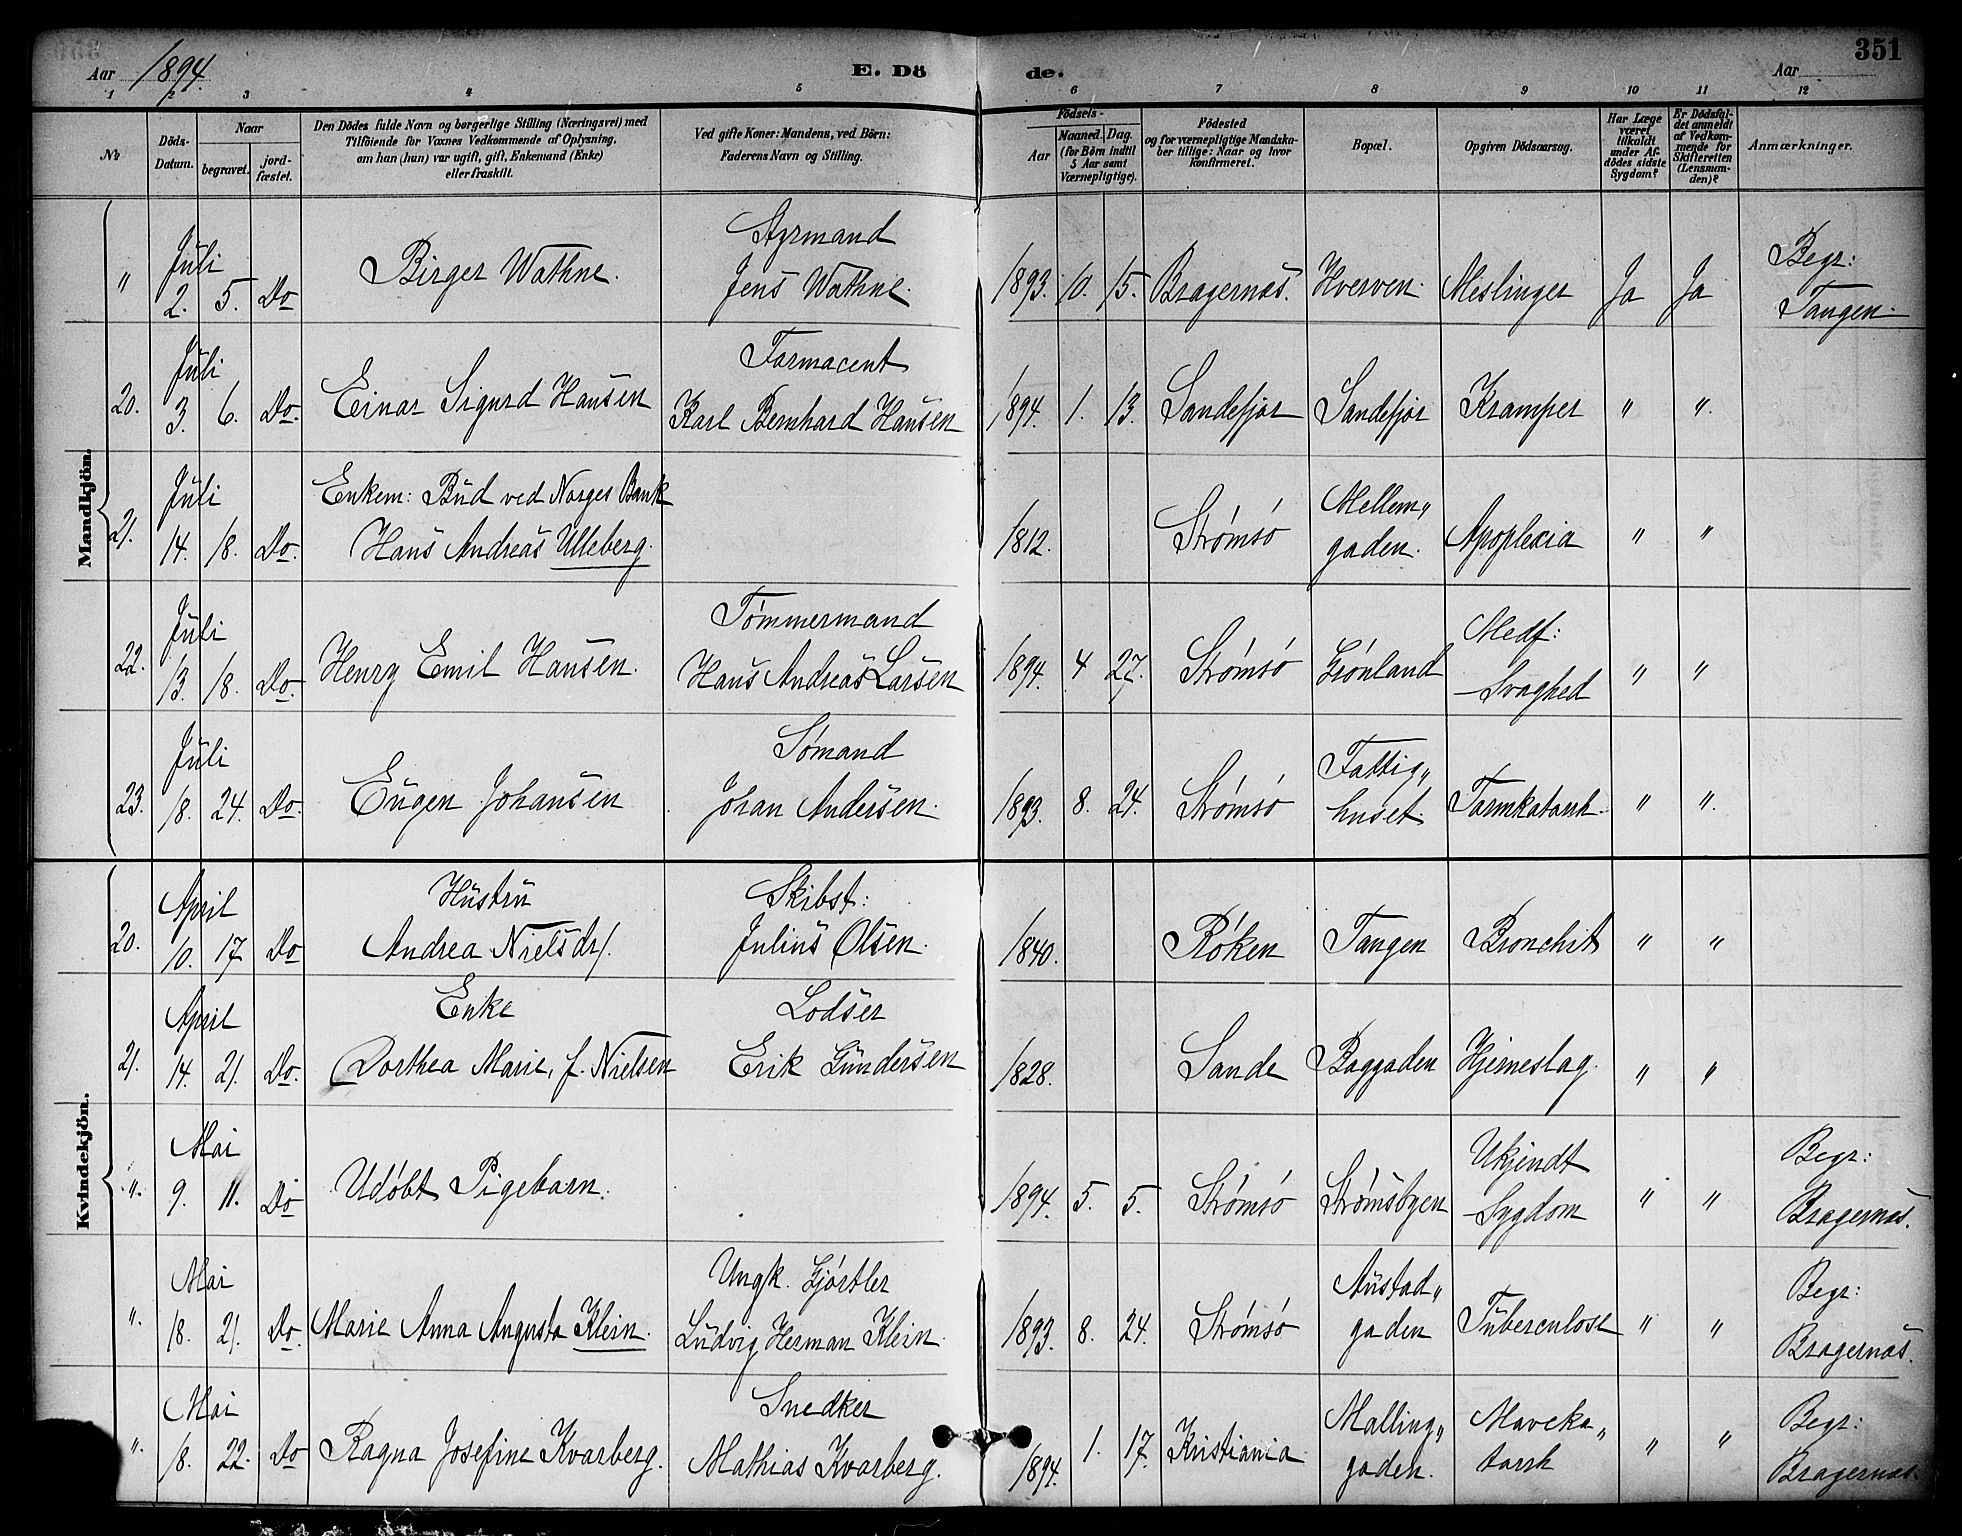 Aar 1894. E. Dö de. Aar 351
1 2 3 4 5 6 7 8 9 10 11 12
No
Döds-Datum.
Naar
begravet.
jord-fæstet.
Den Dödes fulde Navn og borgerlige Stilling (Næringsvei) med
Tilföiende for Voxnes Vedkommende af Oplysning,
om han (hun) var ugift, gift, Enkemand (Enke)
eller fraskilt.
Ved gifte Koner: Mandens, ved Börn:
Faderens Navn og Stilling.
Födsels-
Aar
Maaned. Dag.
(for Börn indtil
5 Aar samt
Værnepligtige).
Födested
og for værnepligtige Mandska-
ber tillige: Naar og hvor
konfirmeret.
Bopæl.
Opgiven Dödsaarsag.
Har Læge
været
tilkaldt
under Af-
dödes sidste
Sygdom?
Er Dödsfal-
det anmeldt
af Vedkom-
mende for
Skifteretten
(Lensman-
den)?
Anmærkninger.
Mandkjön.
Juli Styrmand Begr:
" 2. 5. Do Birger Wathne. Jens Wathne. 1893. 10. 15. Bragernæs. Hverven. Meslinger Ja Ja Tangen.
Juli Farmacent
20. 3. 6. Do. Einar Sigurd Hansen Karl Bernhard Hansen 1894. 1. 13. Sandefjor Sandefjor Kramper " "
Juli Enkem: Bud ved Norges Bank Mellem„
21. 14. 18. Do. Hans Andreas Ulleberg. 1812. Strømsø gaden. Apoplexia " "
Juli Tømmermand Medf:
22. 13. 18. Do. Henry Emil Hansen. Hans Andreas Larsen 1894. 4 27. Strømsø Grønland Svaghed " "
Juli Sømand Fattig„
23. 18. 24. Do. Eugen Johansen Johan Andersen. 1893. 8. 24. Strømsø huset. Tarmkatarrh. " "
Kvindekjön.
April Hustru Skibst:
20. 10. 17 Do Andrea Nielsdr/. Julius Olsen. 1840. Røken Tangen Bronchit " "
April Enke Lodser
21. 14. 21. Do. Dorthea Marie, f. Nielsen Erik Gundersen 1828. Sande Baggaden Hjerneslag. " "
Mai Ukjendt Begr:
" 9. 11. Do Udøbt Pigebarn. 1894. 5. 5. Strømsø Strømsbyen Sygdom " " Bragernæs.
Mai Ungk. Gjørtler Austad„ Begr:
" 18. 21. Do. Marie Anna Augusta Klein. Ludvig Herman Klein. 1893. 8. 24. Strømsø gaden Tuberculose " " Bragernæs.
Mai Snedker Malling„ Maveka„ Begr:
" 18. 22. Do Ragna Josefine Kvarberg. Mathias Kvarberg. 1894. 1. 17. Kristiania gaden. tarrh " " Bragernæs.